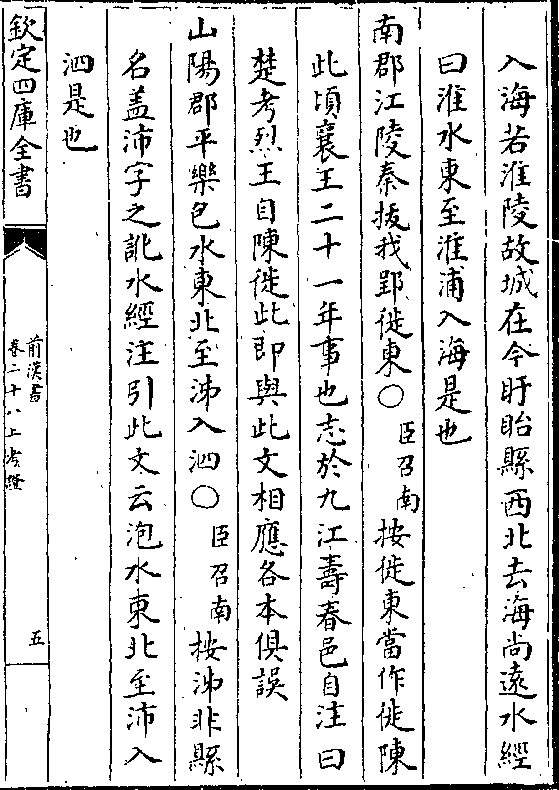 入海若淮陵故城在今盱眙縣西北去海尚遠水經
曰淮水東至淮浦入海是也
南郡江陵秦拔我郢徙東○臣召南按徙東當作徙陳
此頃襄王二十一年事也志於九江壽春邑自注曰
楚考烈王自陳徙此即與此文相應各本俱誤
山陽郡平樂包水東北至沛入泗○臣召南按沛非縣
名盖沛字之訛水經注引此文云泡水東北至沛入
泗是也
欽定四庫全書
前漢書
卷二十八上考證
五